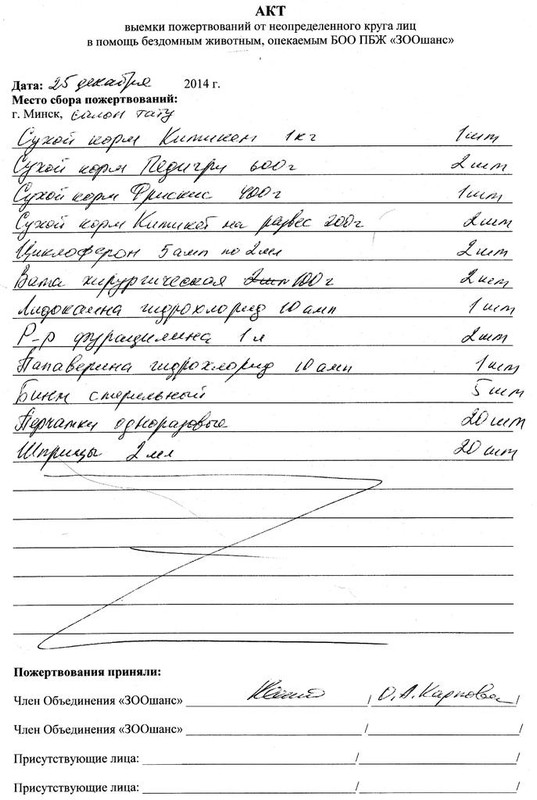 АКТ
выемки пожертвований от неопределенного круга лиц
в помощь бездомным животным, опекаемым БОО ПБЖ «ЗООшанс»
Дата: 25 декабря 2014 г.
Место сбора пожертвований:
г. Минск, салон тату
Сухой корм Китикет 1кг 1шт
Сухой корм Педигри 600г 2шт
Сухой корм Фрискис 400г 1шт
Сухой корм Китикет на развес 200г 2шт
Циклоферон 5 амп по 2мл 2шт
Вата хирургическая 100г 2шт
Лидокаина гидрохлорид 10 амп 1шт
Р-р фурацилина 1л 2шт
Папаверина гидрохлорид 10 амп 1шт
Бинт стерильный 5шт
Перчатки одноразовые 20шт
Шприцы 2мл 20шт
Пожертвования приняли:
Член Объединения «ЗООшанс» / О.А. /
Член Объединения «ЗООшанс» / /
Присутствующие лица: / /
Присутствующие лица: / /